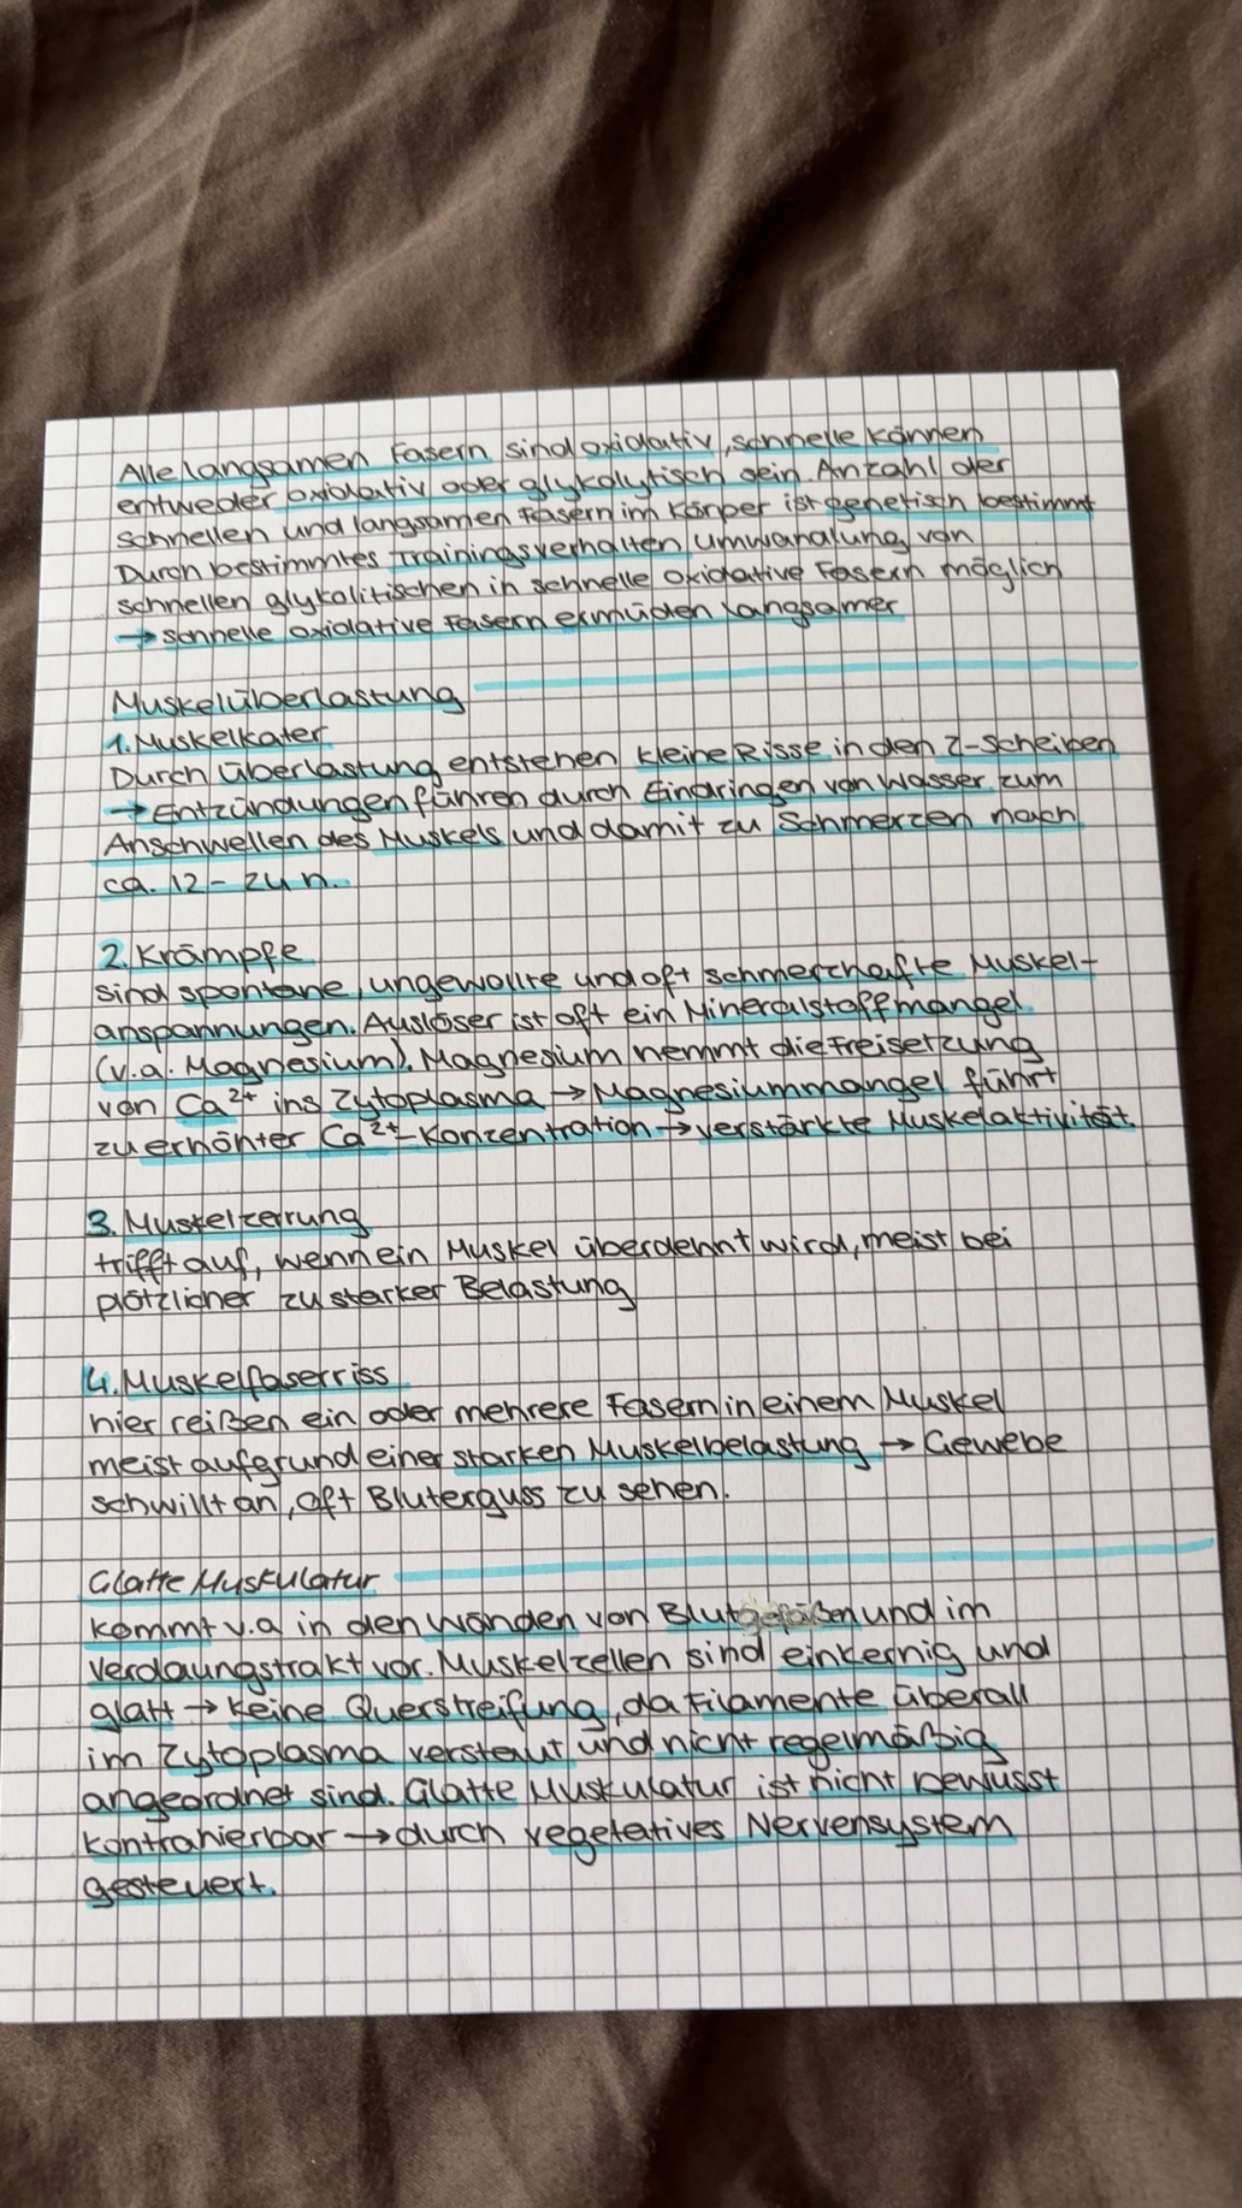 Alle langsamen Fasern sind oxidativ, schnelle können
entweder oxidativ oder glykolytisch sein. Anzahl der
schnellen und langsamen Fasern im Körper ist genetisch bestimmt
Durch bestimmtes Trainingsverhalten Umwandlung von
schnellen glykolitischen in schnelle oxidative Fasern möglich
→ schnelle oxidative Fasern ermüden langsamer
Muskelüberlastung
1. Muskelkater
Durch Überlastung entstehen kleine Risse in den Z-Scheiben
→ Entzündungen führen durch Eindringen von Wasser zum
Anschwellen des Muskels und damit zu Schmerzen nach
ca. 12 - 24 h.
2. Krämpfe
sind spontane, ungewollte und oft schmerzhafte Muskel-
anspannungen. Auslöser ist oft ein Mineralstoffmangel
(v.a. Magnesium). Magnesium hemmt die Freisetzung
von Ca²⁺ ins Zytoplasma → Magnesiummangel führt
zu erhöhter Ca²⁺-Konzentration → verstärkte Muskelaktivität.
3. Muskelzerrung
trifft auf, wenn ein Muskel überdehnt wird, meist bei
plötzlicher zu starker Belastung
4. Muskelfaserriss
hier reißen ein oder mehrere Fasern in einem Muskel
meist aufgrund einer starken Muskelbelastung → Gewebe
schwillt an, oft Bluterguss zu sehen.
Glatte Muskulatur
kommt v.a in den Wänden von Blutgefäßen und im
Verdaungstrakt vor. Muskelzellen sind einkernig und
glatt → keine Querstreifung, da Filamente überall
im Zytoplasma verstreut und nicht regelmäßig
angeordnet sind. Glatte Muskulatur ist nicht bewusst
kontrahierbar → durch vegetatives Nervensystem
gesteuert.